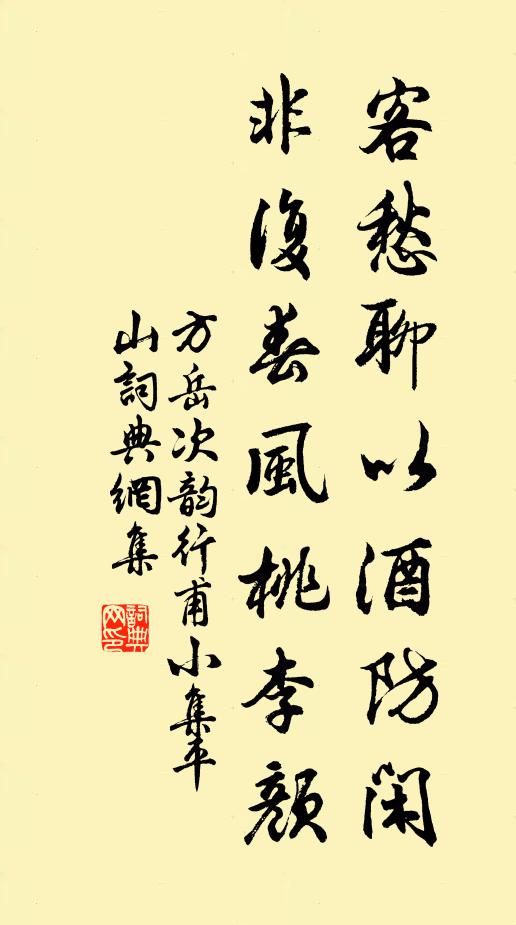 客愁聊以酒防閑
非復春風桃李顏
方岳次韵行甫小集平
山詞典網集
詞典網印